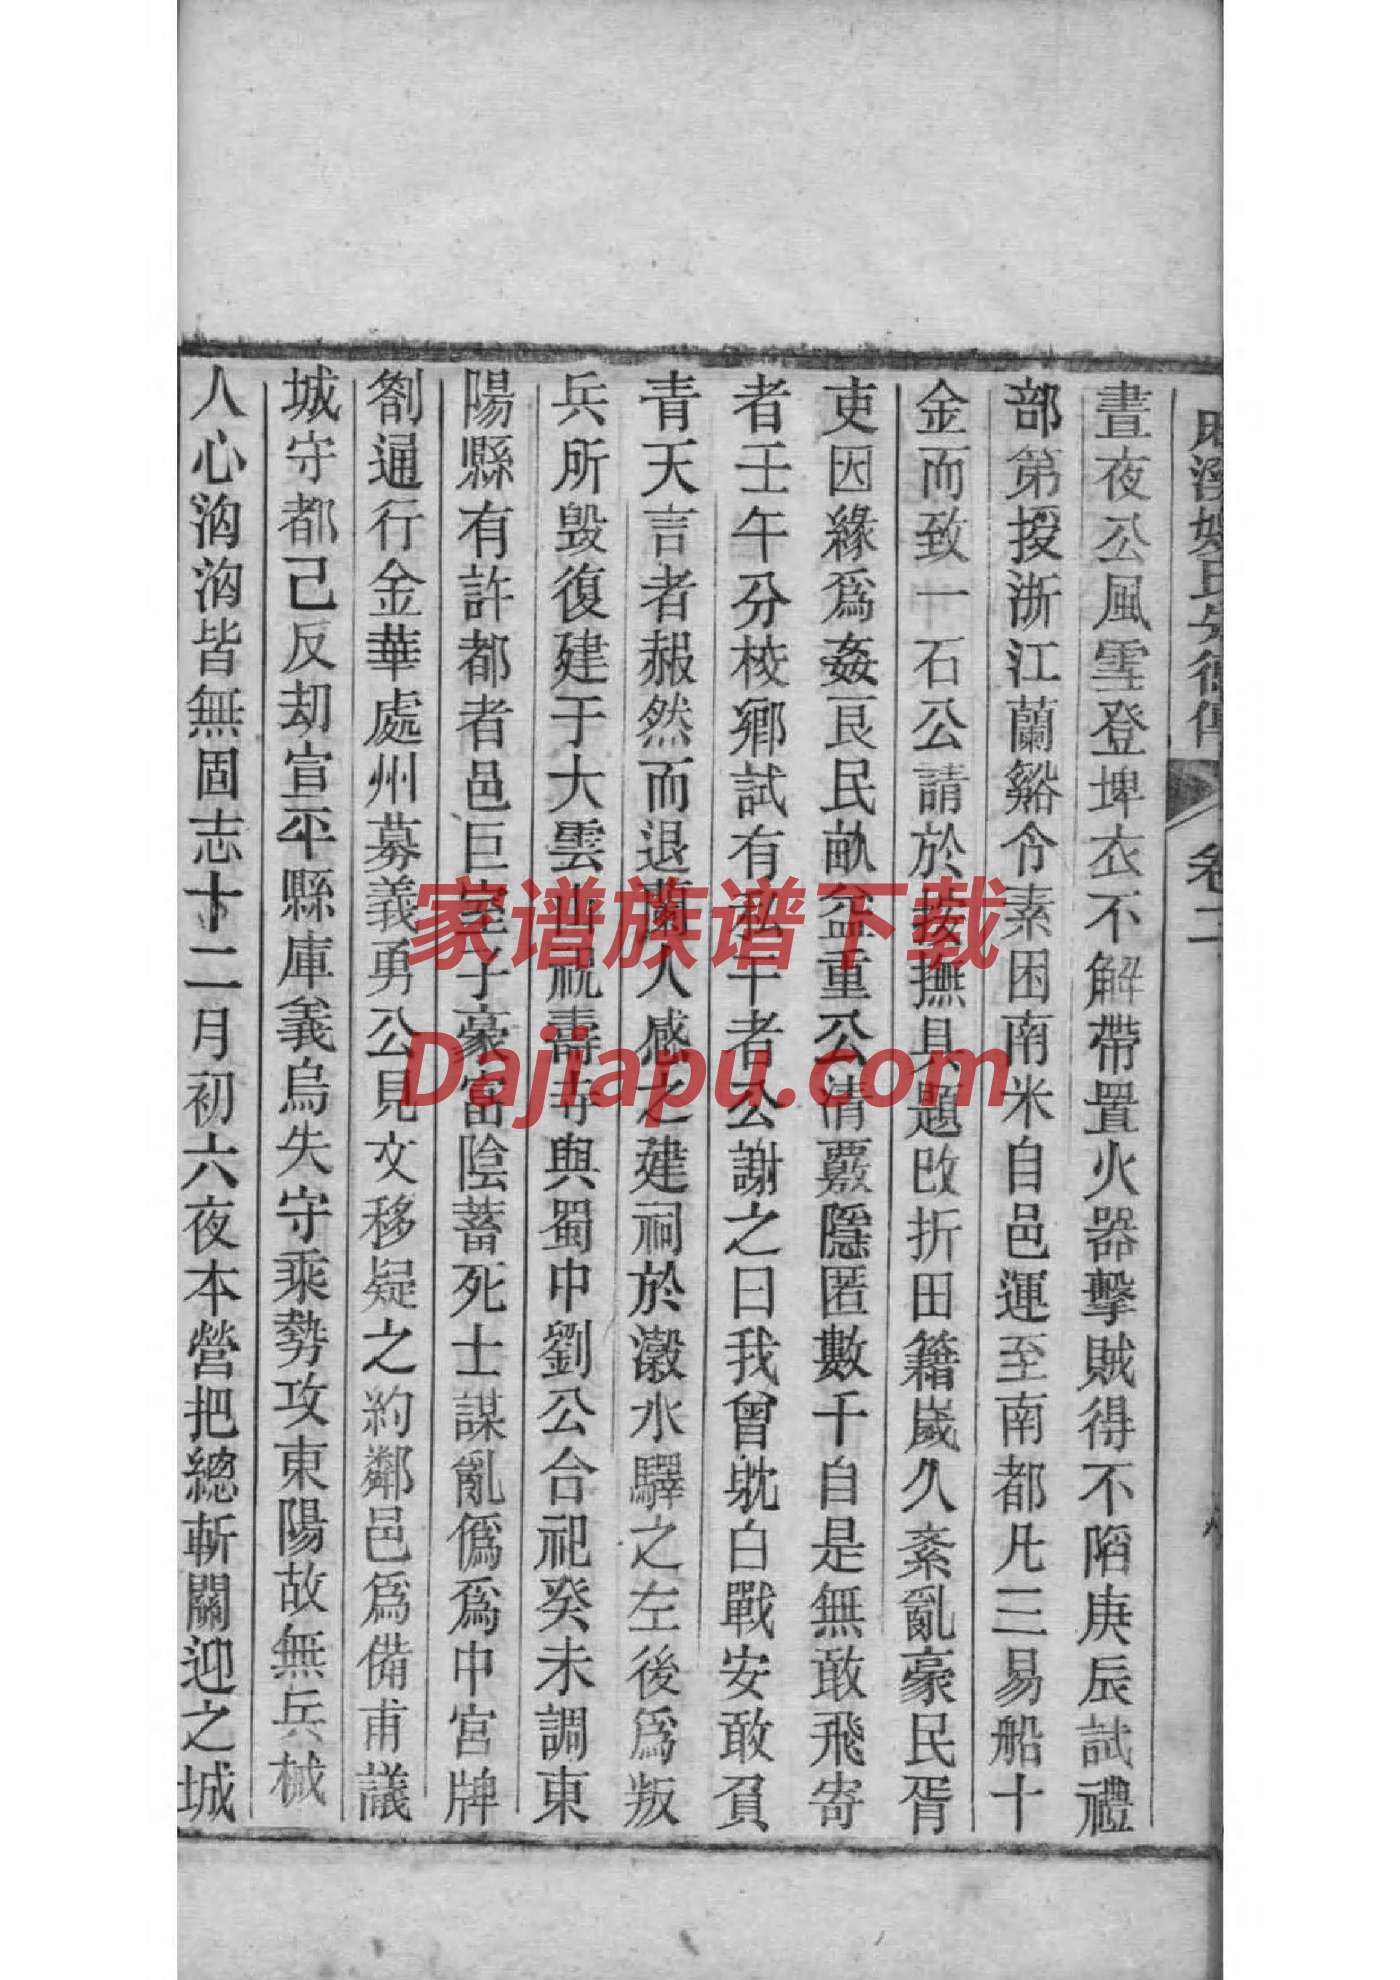 晝夜公風雪登埤衣不解帶置火器擊賊得不陷庚辰試禮
部第授浙江蘭谿令素困南米自邑運至南都凡三易船十
金而致一石公請於按撫具題改折田籍歲久紊亂豪民胥
吏因緣爲姦良民畝益重公清覈隱匿數千自是無敢飛寄
者壬午分校鄉試有私干者公謝之曰我曾躭白戰安敢負
青天言者赧然而退蘭人感之建祠於瀫水驛之左後爲叛
兵所毀復建于大雲山祝壽寺與蜀中劉公合祀癸未調東
陽縣有許都者邑巨室子豪富陰蓄死士謀亂僞爲中宮牌
劄通行金華處州募義勇公見文移疑之約鄰邑爲備甫議
城守都己反刧宣平縣庫義烏失守乘勢攻東陽故無兵械
人心洶洶皆無固志十二月初六夜本營把總斬關迎之城
卷二
家谱族谱下载
Dajiapu.com